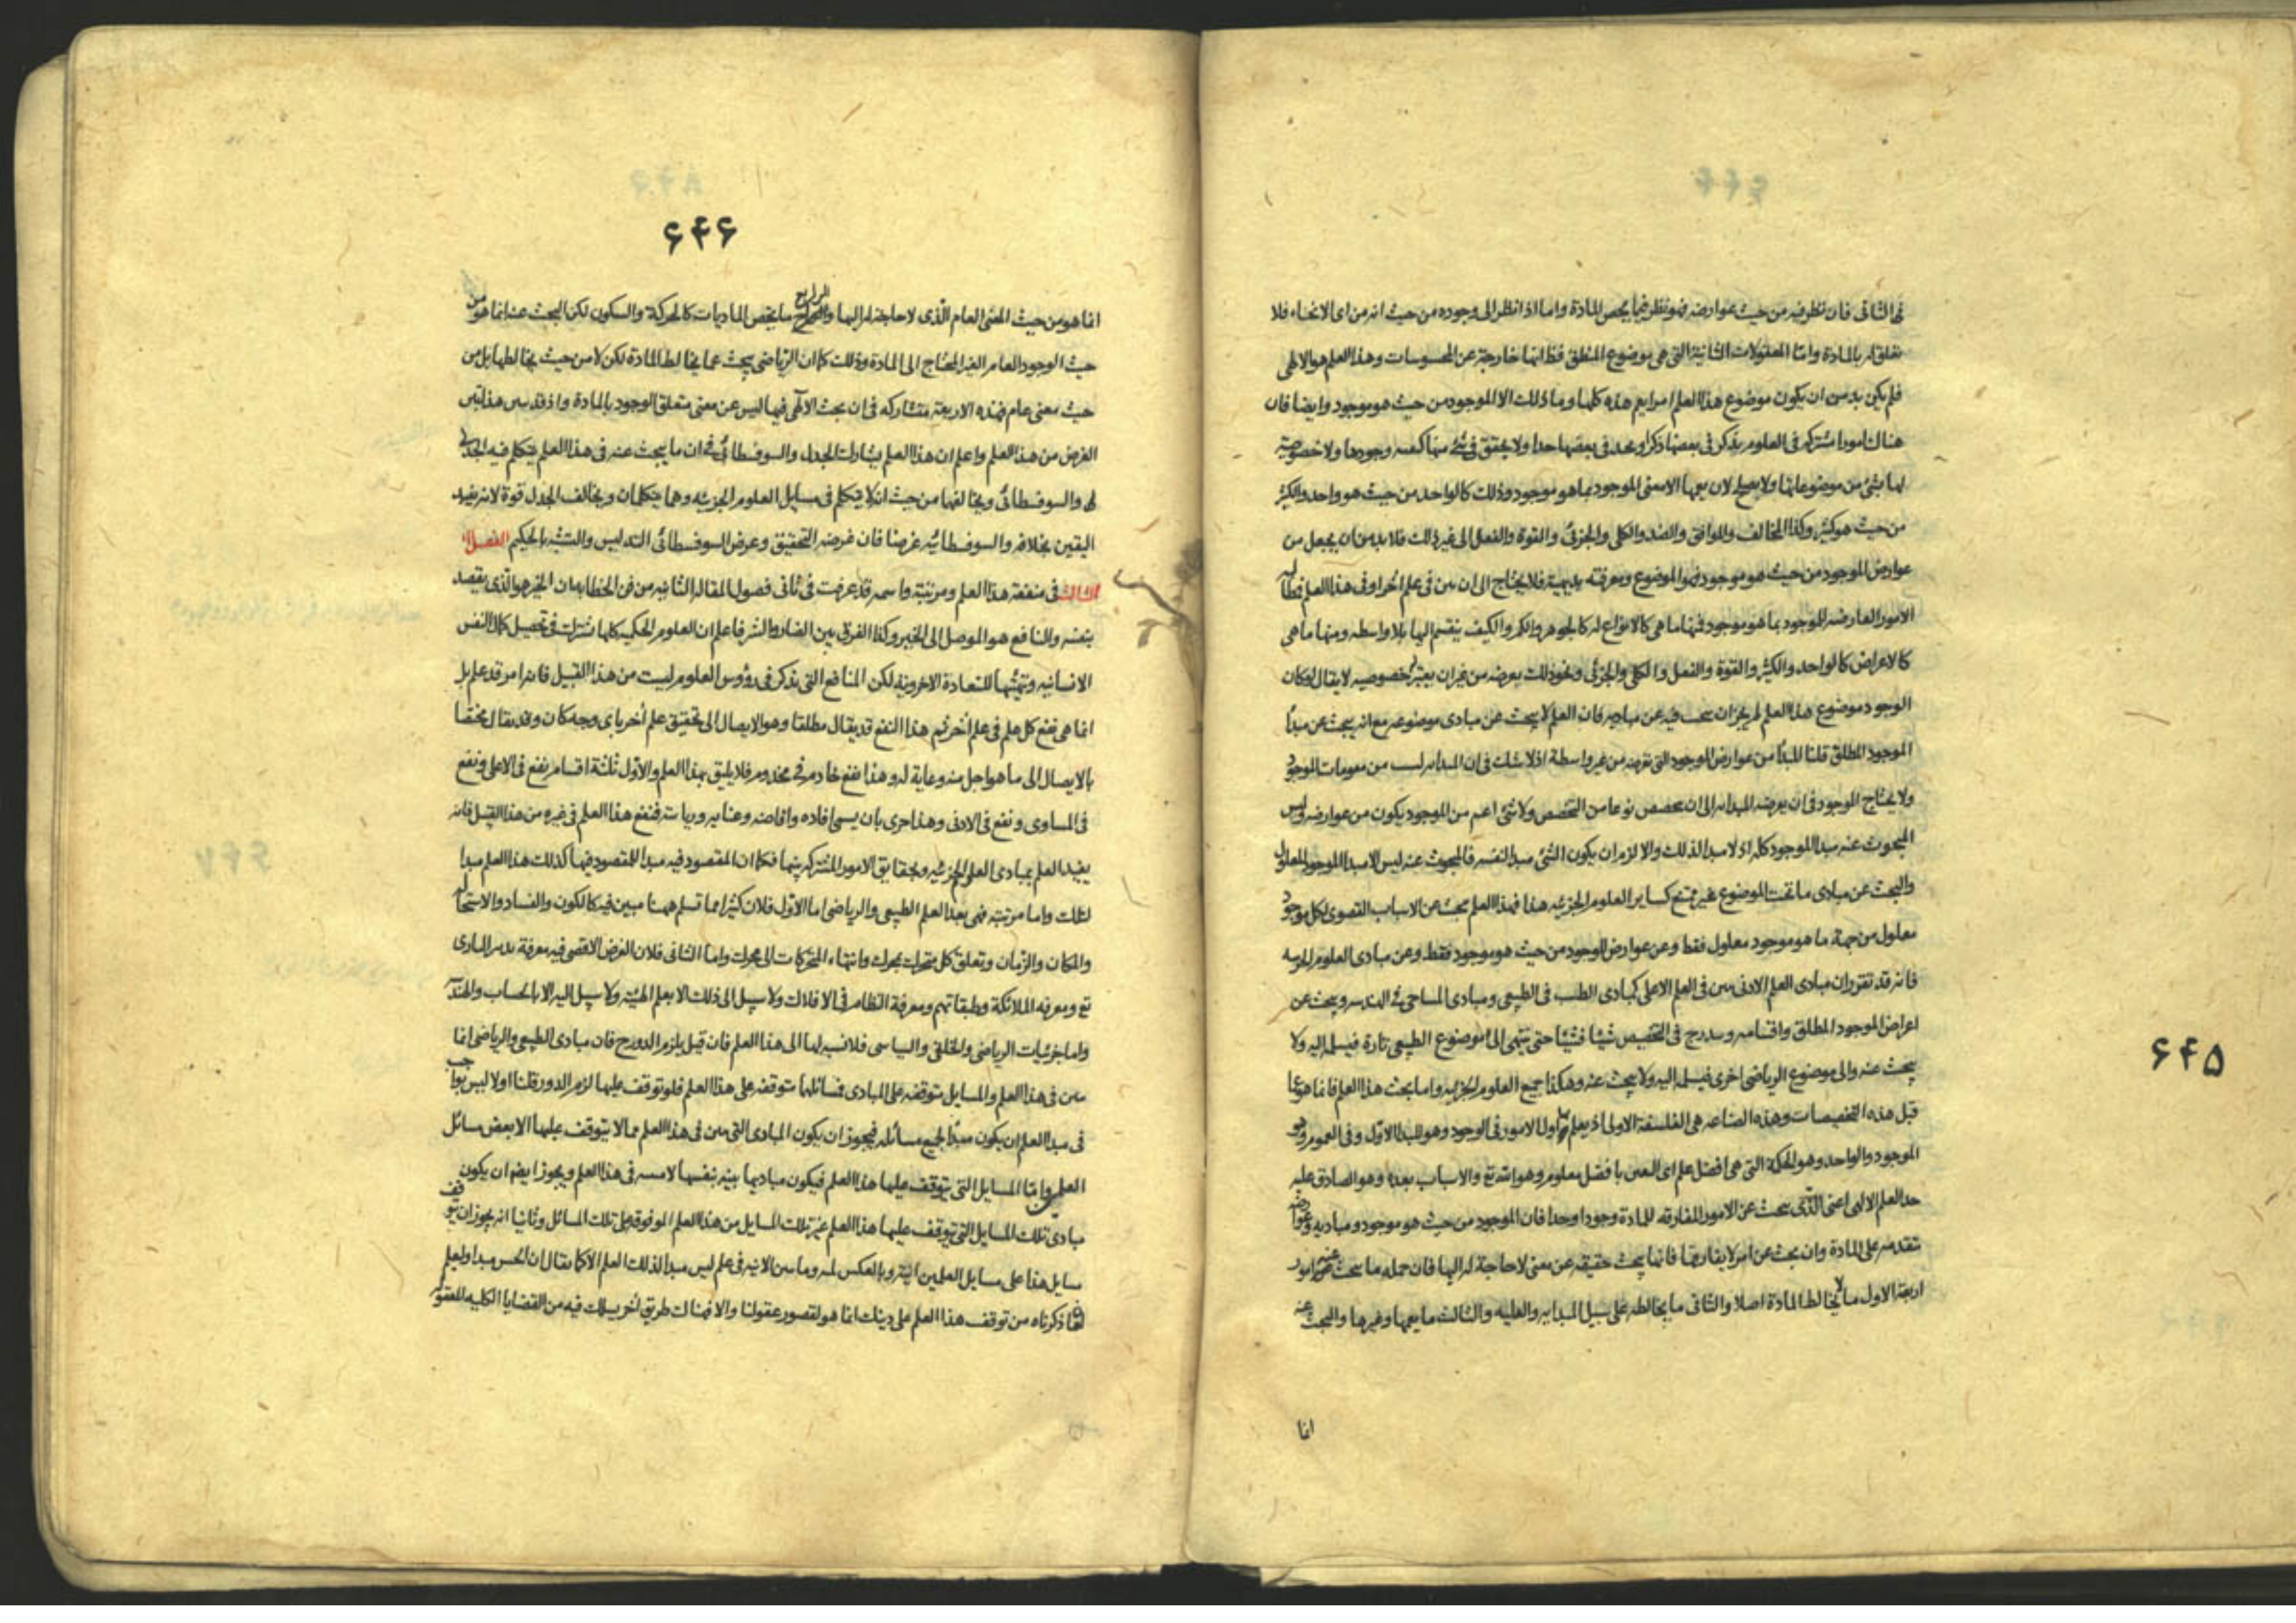 فى الثانى فان نظر فيه من حيث عوارضه فهو نظر فيما يخص المادة واما اذا نظر الى وجوده من حيث انه من اى الانحاء فلا
تعلق له بالمادة واما المعقولات الثانية التى هى موضوع المنطق فظ انها خارجة عن المحسوسات وهذا العلم هو الالهى
فلم يكن بد من ان يكون موضوع هذا العلم امرا يعم هذه كلها وما ذلك الا الموجود من حيث هو موجود وايضا فان
هناك امورا مشتركة فى العلوم يذكر فى بعضها ذكرا ويحد فى بعضها حدا ولا يحقق فى شئ منها كيفية وجودها ولا خصوصية
لها بشئ من موضوعاتها ولا يصلح لان يعمها الا معنى الموجود بما هو موجود وذلك كالواحد من حيث هو واحد والكثير
من حيث هو كثير وكذا المخالف والموافق والضد والكلى والجزئى والقوة والفعل الى غير ذلك فلا بد من ان يجعل من
عوارض الموجود من حيث هو موجود فهو الموضوع ومعرفته بديهية فلا يحتاج الى ان يبين فى علم اخر او فى هذا العلم
الامور العارضة للموجود بما هو موجود فمنها ما هى كالانواع له كالجوهر والكم والكيف ينقسم اليها بلا واسطه ومنها ما هى
كالاعراض كالواحد والكثير والقوة والفعل والكلى والجزئى ونحو ذلك يعرضه من غير ان يعتبر خصوصيه لا يقال لو كان
الوجود موضوع هذا العلم لم يجز ان يبحث فيه عن مباديه فان العلم لا يبحث عن مبادى موضوعه مع انه يبحث عن مبدأ
الموجود المطلق قلنا المبدأ من عوارض الموجود التى تعرضه من غير واسطة اذ لا شك فى ان المبدأيه ليست من مقومات الموجود
ولا يحتاج الموجود فى ان يعرضه المبدائيه الى ان يتخصص نوعا من التخصص ولا شئ اعم من الموجود يكون من عوارضه وليس
المبحوث عنه مبدأ الموجود كله اذ لا مبدأ لذلك والا لزم ان يكون الشئ مبدأ لنفسه فالمبحوث عنه ليس الا مبدأ الموجود المعلول
والبحث عن مبادى ما تحت الموضوع غير ممتنع كساير العلوم الجزئيه هذا فهذا العلم يبحث عن الاسباب القصوى لكل موجود
معلول من جهة ما هو موجود معلول فقط وعن عوارض الموجود من حيث هو موجود فقط وعن مبادى العلوم الجزئيه
فانه قد تقرر ان مبادى العلم الادنى يبين فى العلم الاعلى كمبادى الطب فى الطبيعى ومبادى المساحى فى الهندسه ويبحث عن
اعراض الموجود المطلق واقسامه ويتدرج فى التخصيص شيئا فشيئا حتى ينتهى الى موضوع الطبيعى تارة فيسلمه اليه ولا
يبحث عنه والى موضوع الرياضى اخرى فيسلمه اليه ولا يبحث عنه وهكذا جميع العلوم الجزئيه واما بحث هذا العلم فانما هو عما
قبل هذه التخصيصات وهذه الصناعه هى الفلسفة الاولى اذ يعلم بها اول الامور فى الوجود وهو المبدأ الاول وفى العموم وهو
الموجود والواحد وهو الحكمة التى هى افضل علم اى اليقين بافضل معلوم وهو الله تع والاسباب بعده وهو الصادق عليه
حد العلم الالهى اعنى الذى يبحث عن الامور المفارقه للمادة وجودا وحدا فان الموجود من حيث هو موجود ومباديه وعوارضه
تتقدمه على المادة وان بحث عن امر لا يفارقها فانما يبحث حقيقه عن معنى لا حاجة له اليها فان جمله ما يبحث عنه امور
اربعة الاول ما لا يخالط المادة اصلا والثانى ما يخالطه على سبيل المبدائيه والعليه والثالث ما يعمها وغيرها والبحث عنه
انما
۶۴۵
۶۴۶
انما هو من حيث المعنى العام الذى لا حاجة له اليها والرابع ما يختص الماديات كالحركة والسكون لكن البحث عنه انما هو من
حيث الوجود العام الغير المحتاج الى المادة وذلك كما ان الرياضى يبحث عما يخالط المادة لكن لا من حيث يخالطها بل من
حيث معنى عام فهذه الاربعة متشاركه فى ان بحث الالهى فيها ليس عن معنى متعلق الوجود بالمادة واذ قد تبين هذا تبين
الغرض من هذا العلم واعلم ان هذا العلم يشارك الجدل والسوفسطائى فى ان ما يبحث عنه فى هذا العلم يتكلم فيه الجدلى
والسوفسطائى ويخالفهما من حيث انه لا يتكلم فى مسايل العلوم الجزئيه وهما يتكلمان ويخالف الجدل قوة لانه يفيد
اليقين بخلافه والسوفسطائيه غرضا فان غرضه التحقيق وغرض السوفسطائى التدليس والتشبه بالحكيم الفصل
الثالث فى منفعة هذا العلم ومرتبته واسمه قد عرفت فى ثانى فصول المقاله الثانيه من فن الخطابه ان الخير هو الذى يقصد
بنفسه والنافع هو الموصل الى الخير وكذا الفرق بين الضار والشر فاعلم ان العلوم الحكميه كلها تشترك فى تحصيل كمال النفس
الانسانيه وتهيئها للسعادة الاخروية لكن المنافع التى يذكر فى رؤوس العلوم ليست من هذا القبيل فانه امر قد علم بل
انما هى نفع كل علم فى علم أخر ثم هذا النفع قد يقال مطلقا وهو الايصال الى تحقيق علم أخر باى وجه كان وقد يقال مختصا
بالايصال الى ما هو اجل منه وغاية له وهذا نفع خادم فى مخدوم فلا يليق بهذا العلم والاول ثلثة اقسام نفع فى الاعلى ونفع
فى المساوى ونفع فى الادنى وهذا حرى بان يسمى افاده وافاضه وعنايه ورياسة فنفع هذا العلم فى غيره من هذا القبيل فانه
يفيد العلم بمبادى العلوم الجزئيه وبحقايق الامور المشتركه بينها فكما ان المقصود فيه مبدأ للمقصود فيها كذلك هذا العلم مبدأ
لتلك واما مرتبته فهى بعد العلم الطبيعى والرياضى اما الاول فلان كثيرا مما تسلم ههنا مبين فيه كالكون والفساد والاستحالة
والمكان والزمان وتعلق كل متحرك بمحرك وانتهاء المتحركات الى محرك واما الثانى فلان الغرض الاقصى فيه معرفة تدبير البارى
تع ومعرفه الملائكة وطبقاتهم ومعرفة النظام فى الافلاك ولا سبيل الى ذلك الا بعلم الهيئة ولا سبيل اليه الا بالحساب والهندسة
واما جزئيات الرياضى والخلقى والسياسى فلا نسبه لها الى هذا العلم فان قيل يلزم الدور ح فان مبادى الطبيعى والرياضى انما
يبين فى هذا العلم والمسايل متوقفه على المبادى فمسائلها متوقفه على هذا العلم فلو توقف عليها لزم الدور قلنا اولا ليس بواجب
فى مبدأ العلم ان يكون مبدأ لجميع مسائله فيجوز ان يكون المبادى التى يبين فى هذا العلم مما لا يتوقف عليها الا بعض مسائل
العلمين واما المسايل التى يتوقف عليها هذا العلم فيكون مباديها بينه بنفسها لا مبينه فى هذا العلم ويجوز ايضا ان يكون
مبادى تلك المسايل التى يتوقف عليها هذا العلم غير تلك المسايل من هذا العلم الموقوفة على تلك المسائل وثانيا انه يجوز ان يتوقف
مسايل هذا على مسايل العلمين انية وبالعكس لمية وما يبين الانيه فى علم ليس مبدأ لذلك العلم الا كما يقال ان الحس مبدأ و
ما ذكرناه من توقف هذا العلم على ذينك انما هو لقصور عقولنا والا فهناك طريق أخر يسلك فيه من القضايا الكليه المعقوله